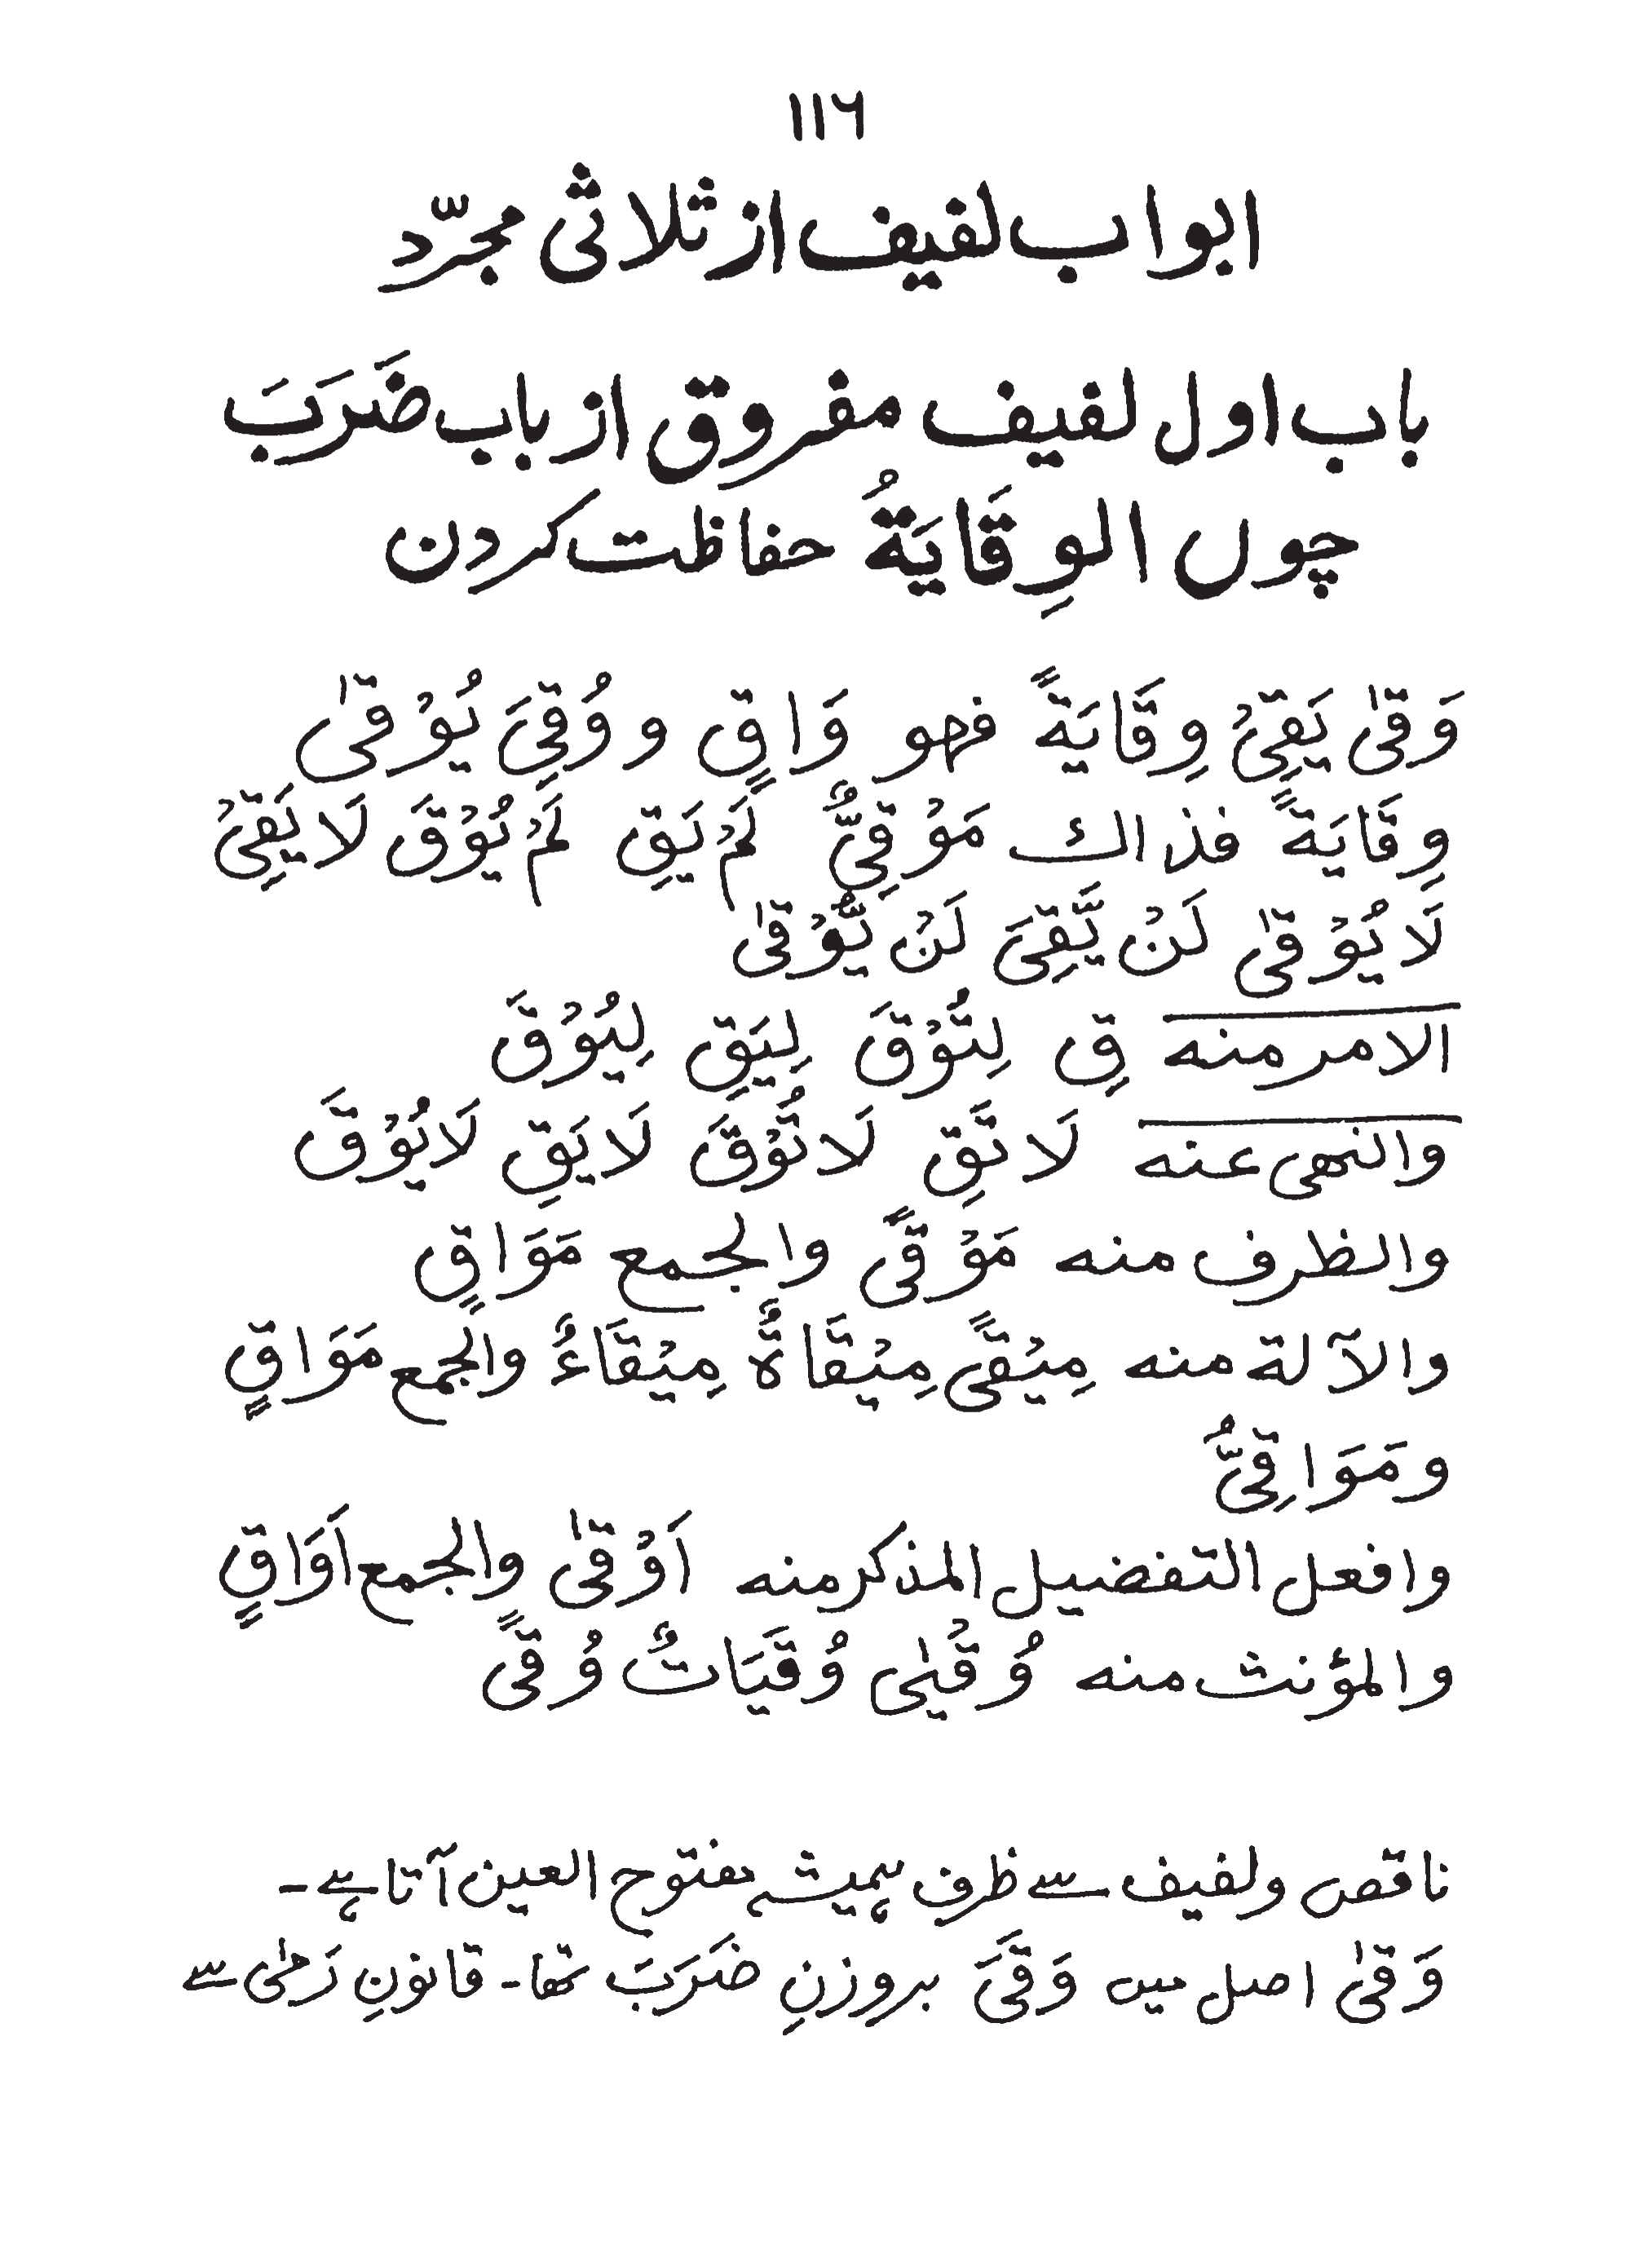 ١١٦
ابواب لفيف از ثلاثى مجرّد
باب اول لفيف مفروق از باب ضَرَبَ
چوں الوِقَايَةُ حفاظت كردن
وَقىٰ يَقِىْ وِقَايَةً فهو وَاقٍ و وُقِىَ يُوْقىٰ
وِقَايَةً فذاك مَوْقِىٌّ لَمْ يَقِ لَمْ يُوْقَ لَا يَقِىْ
لَا يُوْقىٰ لَنْ يَّقِىَ لَنْ يُّوْقىٰ
الامر منه قِ لِتُوْقَ لِيَقِ لِيُوْقَ
والنهى عنه لَا تَقِ لَا تُوْقَ لَا يَقِ لَا يُوْقَ
والظرف منه مَوْقًى والجمع مَوَاقٍ
والآلة منه مِيْقًى مِيْقَاةٌ مِيْقَاءٌ والجمع مَوَاقٍ
و مَوَاقِىُّ
وافعل التفضيل المذكر منه اَوْقىٰ والجمع اَوَاقٍ
والمؤنث منه وُقْيٰى وُقَيَاتٌ وُقًى
ناقص ولفیف سے ظرف ہمیشہ مفتوح العین آتا ہے۔
وَقىٰ اصل میں وَقَىَ بروزنِ ضَرَبَ تھا۔ قانونِ رَمٰی سے